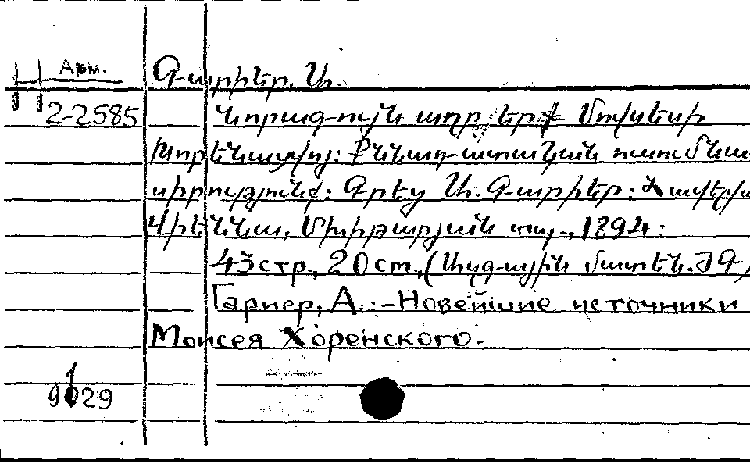 Арм.
Գարիեր, Ա.
2-2585
Նորագոյն աղբերք Մովսեսի
Խորենացւոյ: Քննադատական ուսումնա
սիրությունք: Գրեց Ա. Գարիեր:
Վիեննա, Մխիթարյան տպ., 1894:
43 стр., 20 cm, (Ազգային մատեն. ԺԳ)
Гариер, А. :-Новейшие источники
Моисея Хоренского.
9029